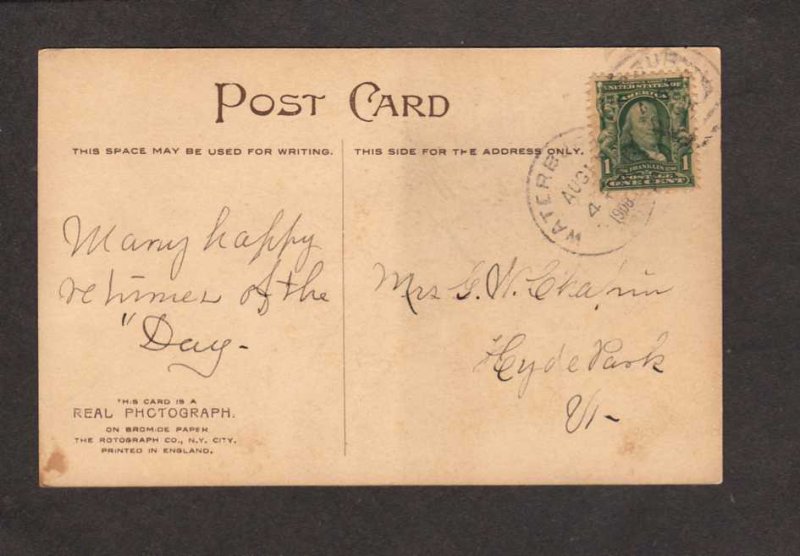 POST CARD
THIS SPACE MAY BE USED FOR WRITING.
THIS SIDE FOR THE ADDRESS ONLY.
UNITED STATES OF
AMERICA
1 FRANKLIN 1
POSTAGE
ONE CENT
WATERB
AUG
4
1908
Many happy
returnes of the
"Day-
Mrs G. W.
Hyde Park
Vt-
THIS CARD IS A
REAL PHOTOGRAPH.
ON BROMIDE PAPER
THE ROTOGRAPH CO., N.Y. CITY.
PRINTED IN ENGLAND.